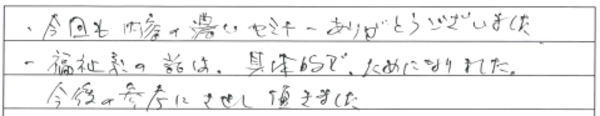 ・今回も内容の濃いセミナーありがとうございました
・福祉系の話は、具体的で、ためになりました。
今後の参考にさせて頂きました